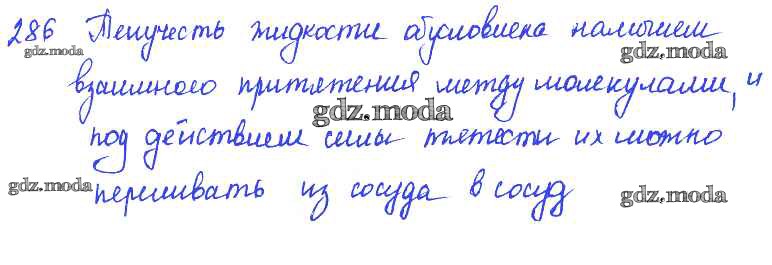 286 Текучесть жидкости обусловлена наличием
gdz.moda gdz.moda
взаимного притяжения между молекулами, и
gdz.moda
под действием силы тяжести их можно
gdz.moda переливать из сосуда в сосуд gdz.moda